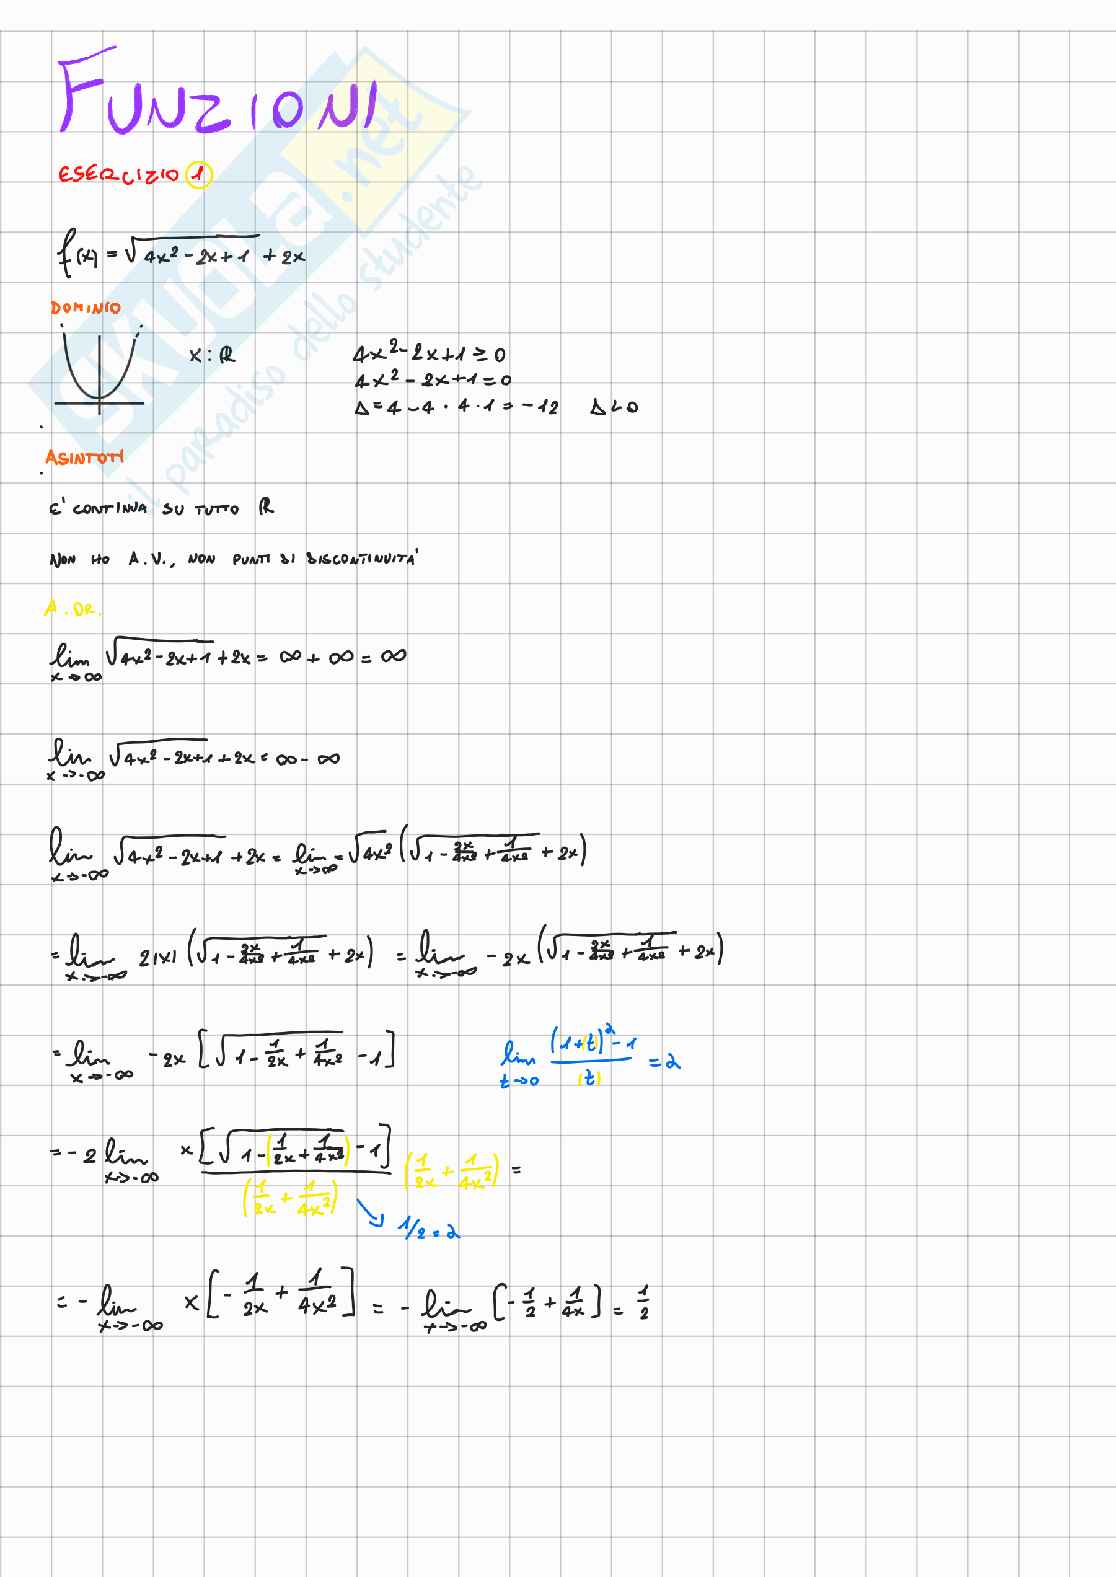 FUNZIONI
ESERCIZIO 1
f(x) = √(4x² - 2x + 1) + 2x
DOMINIO
x : ℝ
4x² - 2x + 1 ≥ 0
4x² - 2x + 1 = 0
Δ = 4 - 4 · 4 · 1 = -12 Δ < 0
ASINTOTI
E' CONTINUA SU TUTTO ℝ
NON HO A.V., NON PUNTI DI DISCONTINUITA'
A. OR.
lim x→∞ √(4x² - 2x + 1) + 2x = ∞ + ∞ = ∞
lim x→-∞ √(4x² - 2x + 1) + 2x = ∞ - ∞
lim x→-∞ √(4x² - 2x + 1) + 2x = lim x→∞ = √4x² (√(1 - 2x/4x² + 1/4x²) + 2x)
= lim x→-∞ 2|x| (√(1 - 2x/4x² + 1/4x²) + 2x) = lim x→-∞ -2x (√(1 - 2x/4x² + 1/4x²) + 2x)
= lim x→-∞ -2x [√(1 - 1/2x + 1/4x²) - 1]
lim t→0 ((1 + (t))² - 1)/(t) = 2
= -2 lim x→-∞ x [√(1 - (1/2x + 1/4x²)) - 1] / (1/2x + 1/4x²) (1/2x + 1/4x²) =
1/2 = 2
= - lim x→-∞ x [-1/2x + 1/4x²] = - lim x→-∞ [-1/2 + 1/4x] = 1/2
SKUOLA.net
il paradiso dello studente